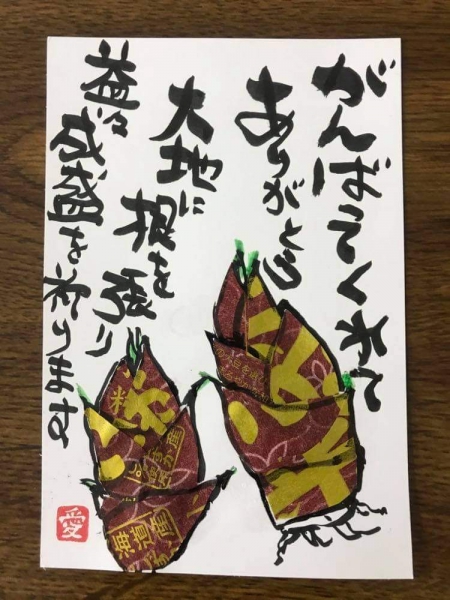 がんばってくれて
ありがとう
大地に
根を張り
益々
成盛を祈ります
愛
海道産